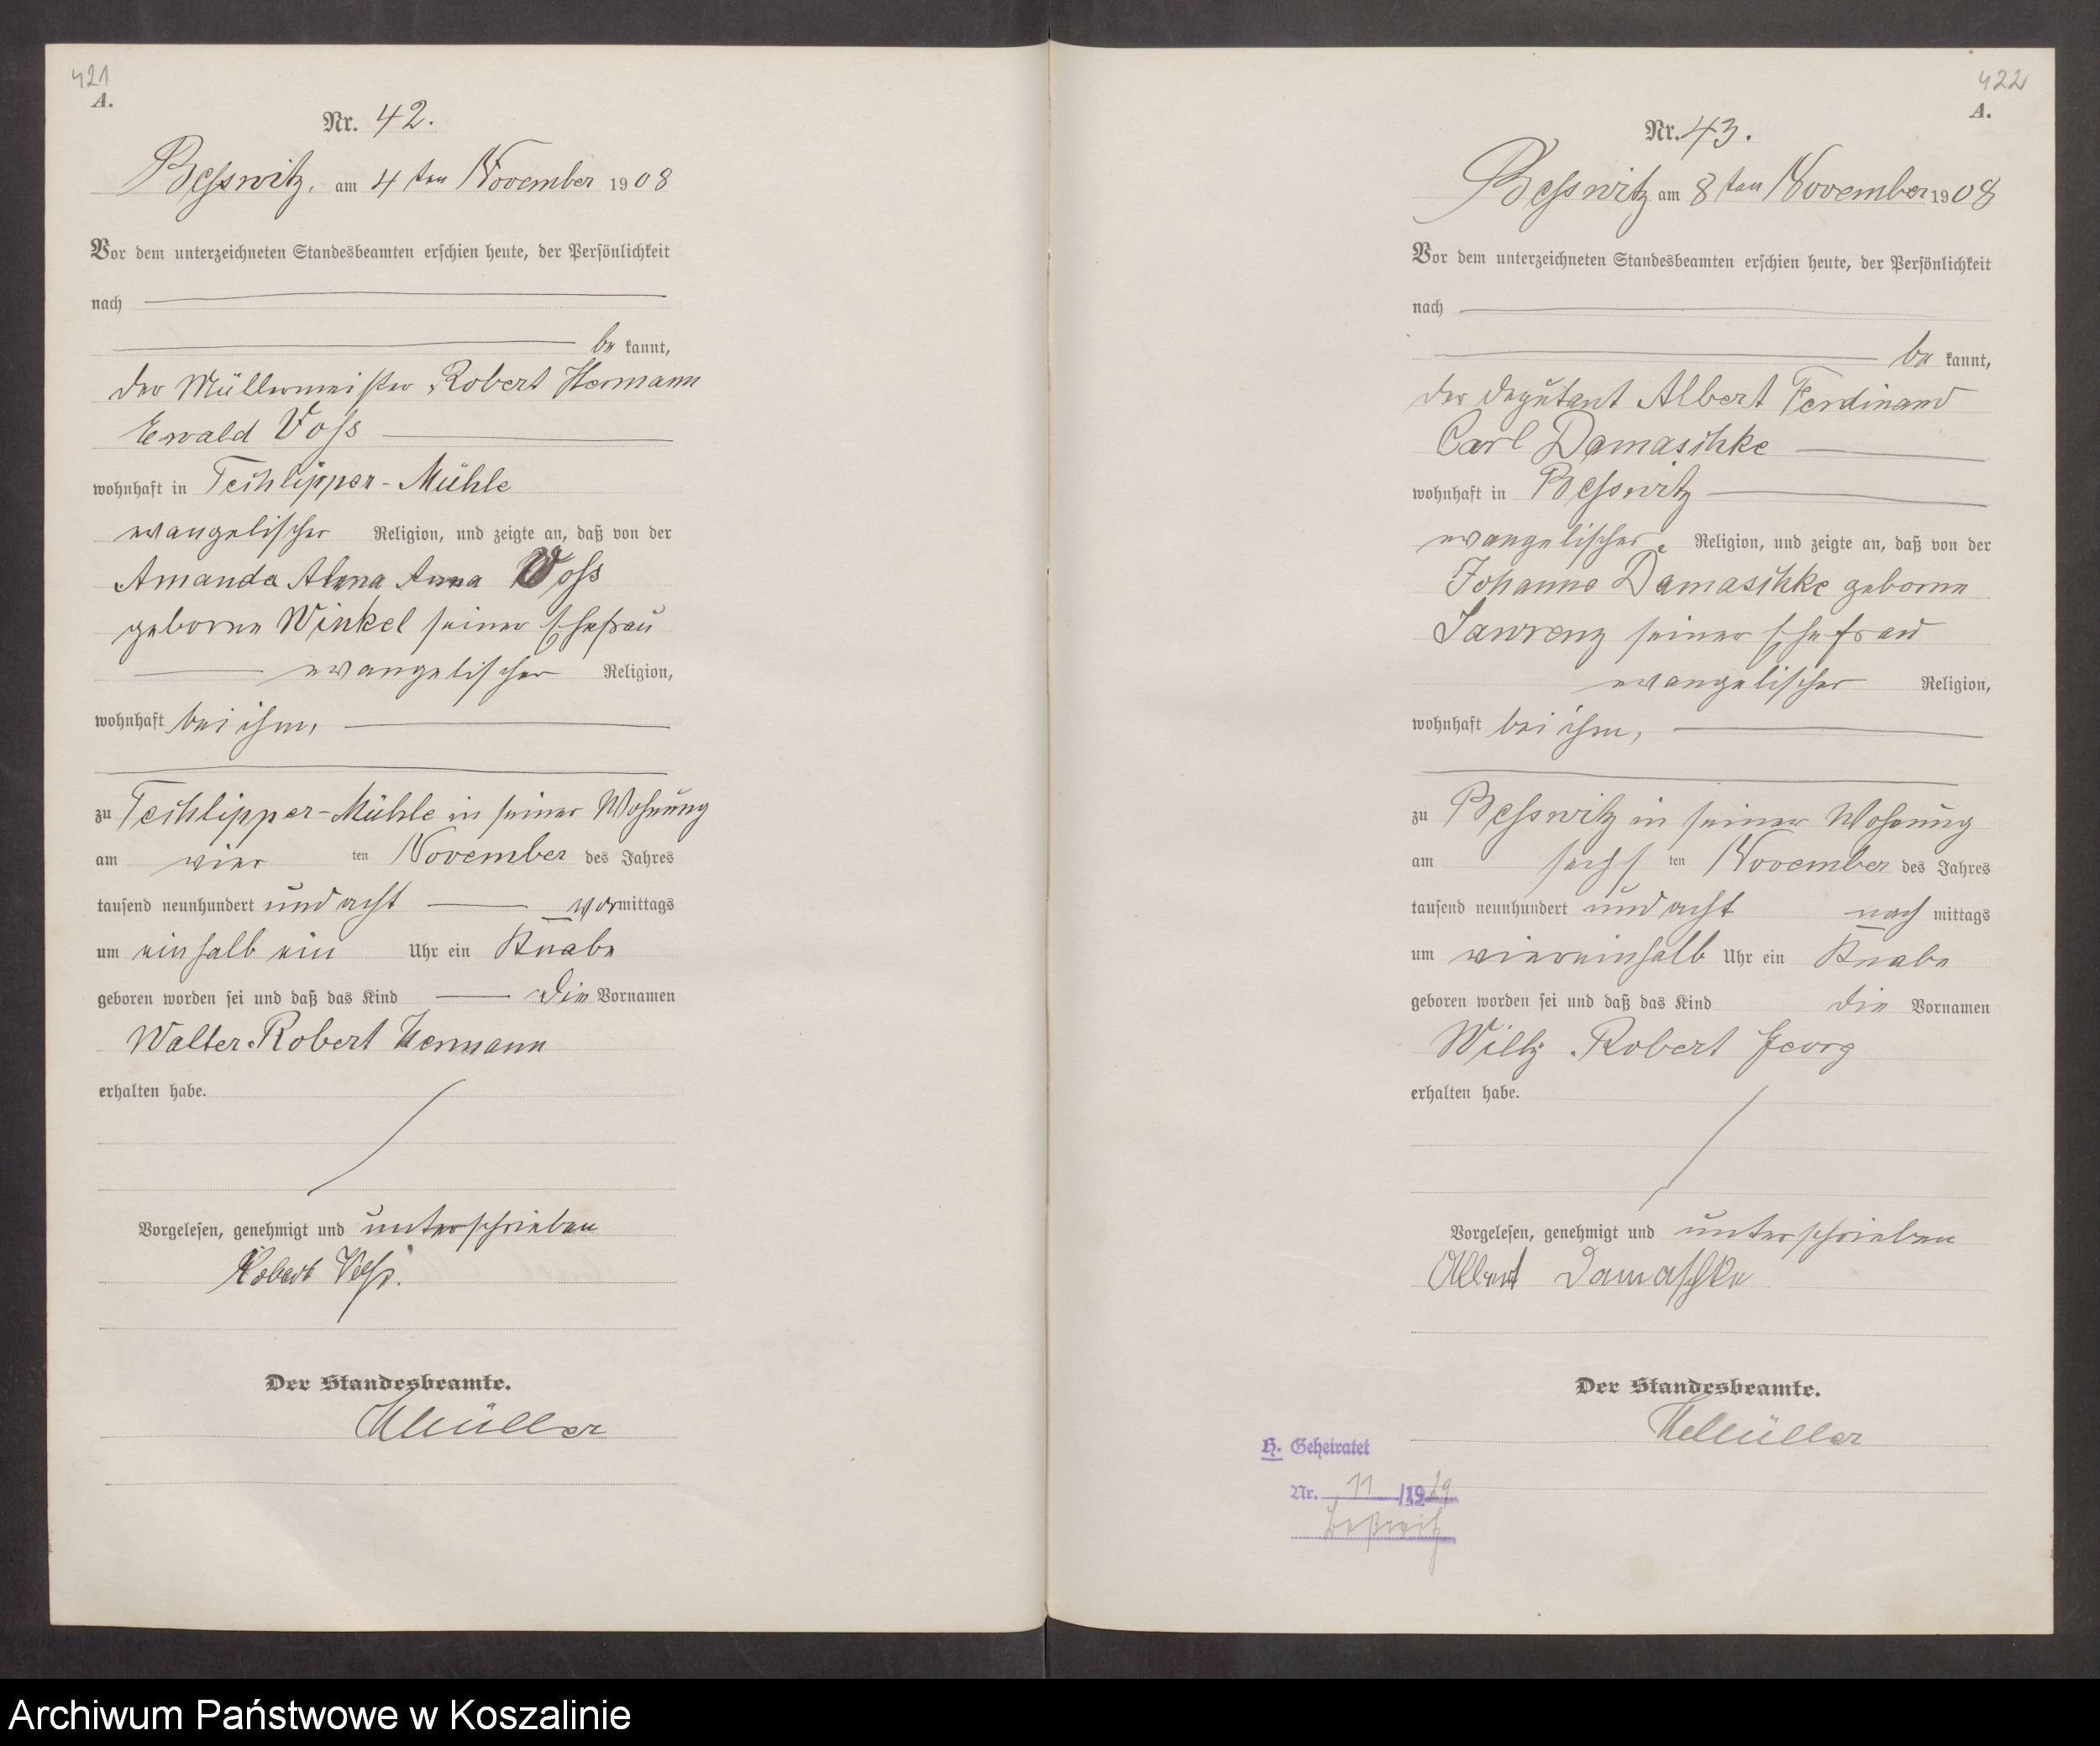 421
A.
Nr. 42.
Besswitz, am 4 ten November 1908
Vor dem unterzeichneten Standesbeamten erschien heute, der Persönlichkeit
nach
be kannt,
der Müllermeister Robert Hermann
Ewald Voss
wohnhaft in Techlipper-Mühle
evangelischer Religion, und zeigte an, daß von der
Amanda Anna Voss
geborne Winkel seiner Ehefrau
evangelischer Religion,
wohnhaft bei ihm,
zu Techlipper-Mühle in seiner Wohnung
am vier ten November des Jahres
tausend neunhundert und acht vormittags
um einhalb ein Uhr ein Knabe
geboren worden sei und daß das Kind die Vornamen
Walter Robert Hermann
erhalten habe.
Vorgelesen, genehmigt und unterschrieben
Robert Voss.
Der Standesbeamte.
Müller
422
A.
Nr. 43.
Besswitz am 8 ten November 1908
Vor dem unterzeichneten Standesbeamten erschien heute, der Persönlichkeit
nach
be kannt,
der Deputant Albert Ferdinand
Carl Damaschke
wohnhaft in Besswitz
evangelischer Religion, und zeigte an, daß von der
Johanne Damaschke geborne
Lawrenz seiner Ehefrau
evangelischer Religion,
wohnhaft bei ihm,
zu Besswitz in seiner Wohnung
am sechs ten November des Jahres
tausend neunhundert und acht nach mittags
um viereinhalb Uhr ein Knabe
geboren worden sei und daß das Kind die Vornamen
Willy Robert Georg
erhalten habe.
Vorgelesen, genehmigt und unterschrieben
Albert Damaschke
Der Standesbeamte.
Müller
H. Geheiratet
Nr. 11 /1929
Beßwitz
Archiwum Państwowe w Koszalinie